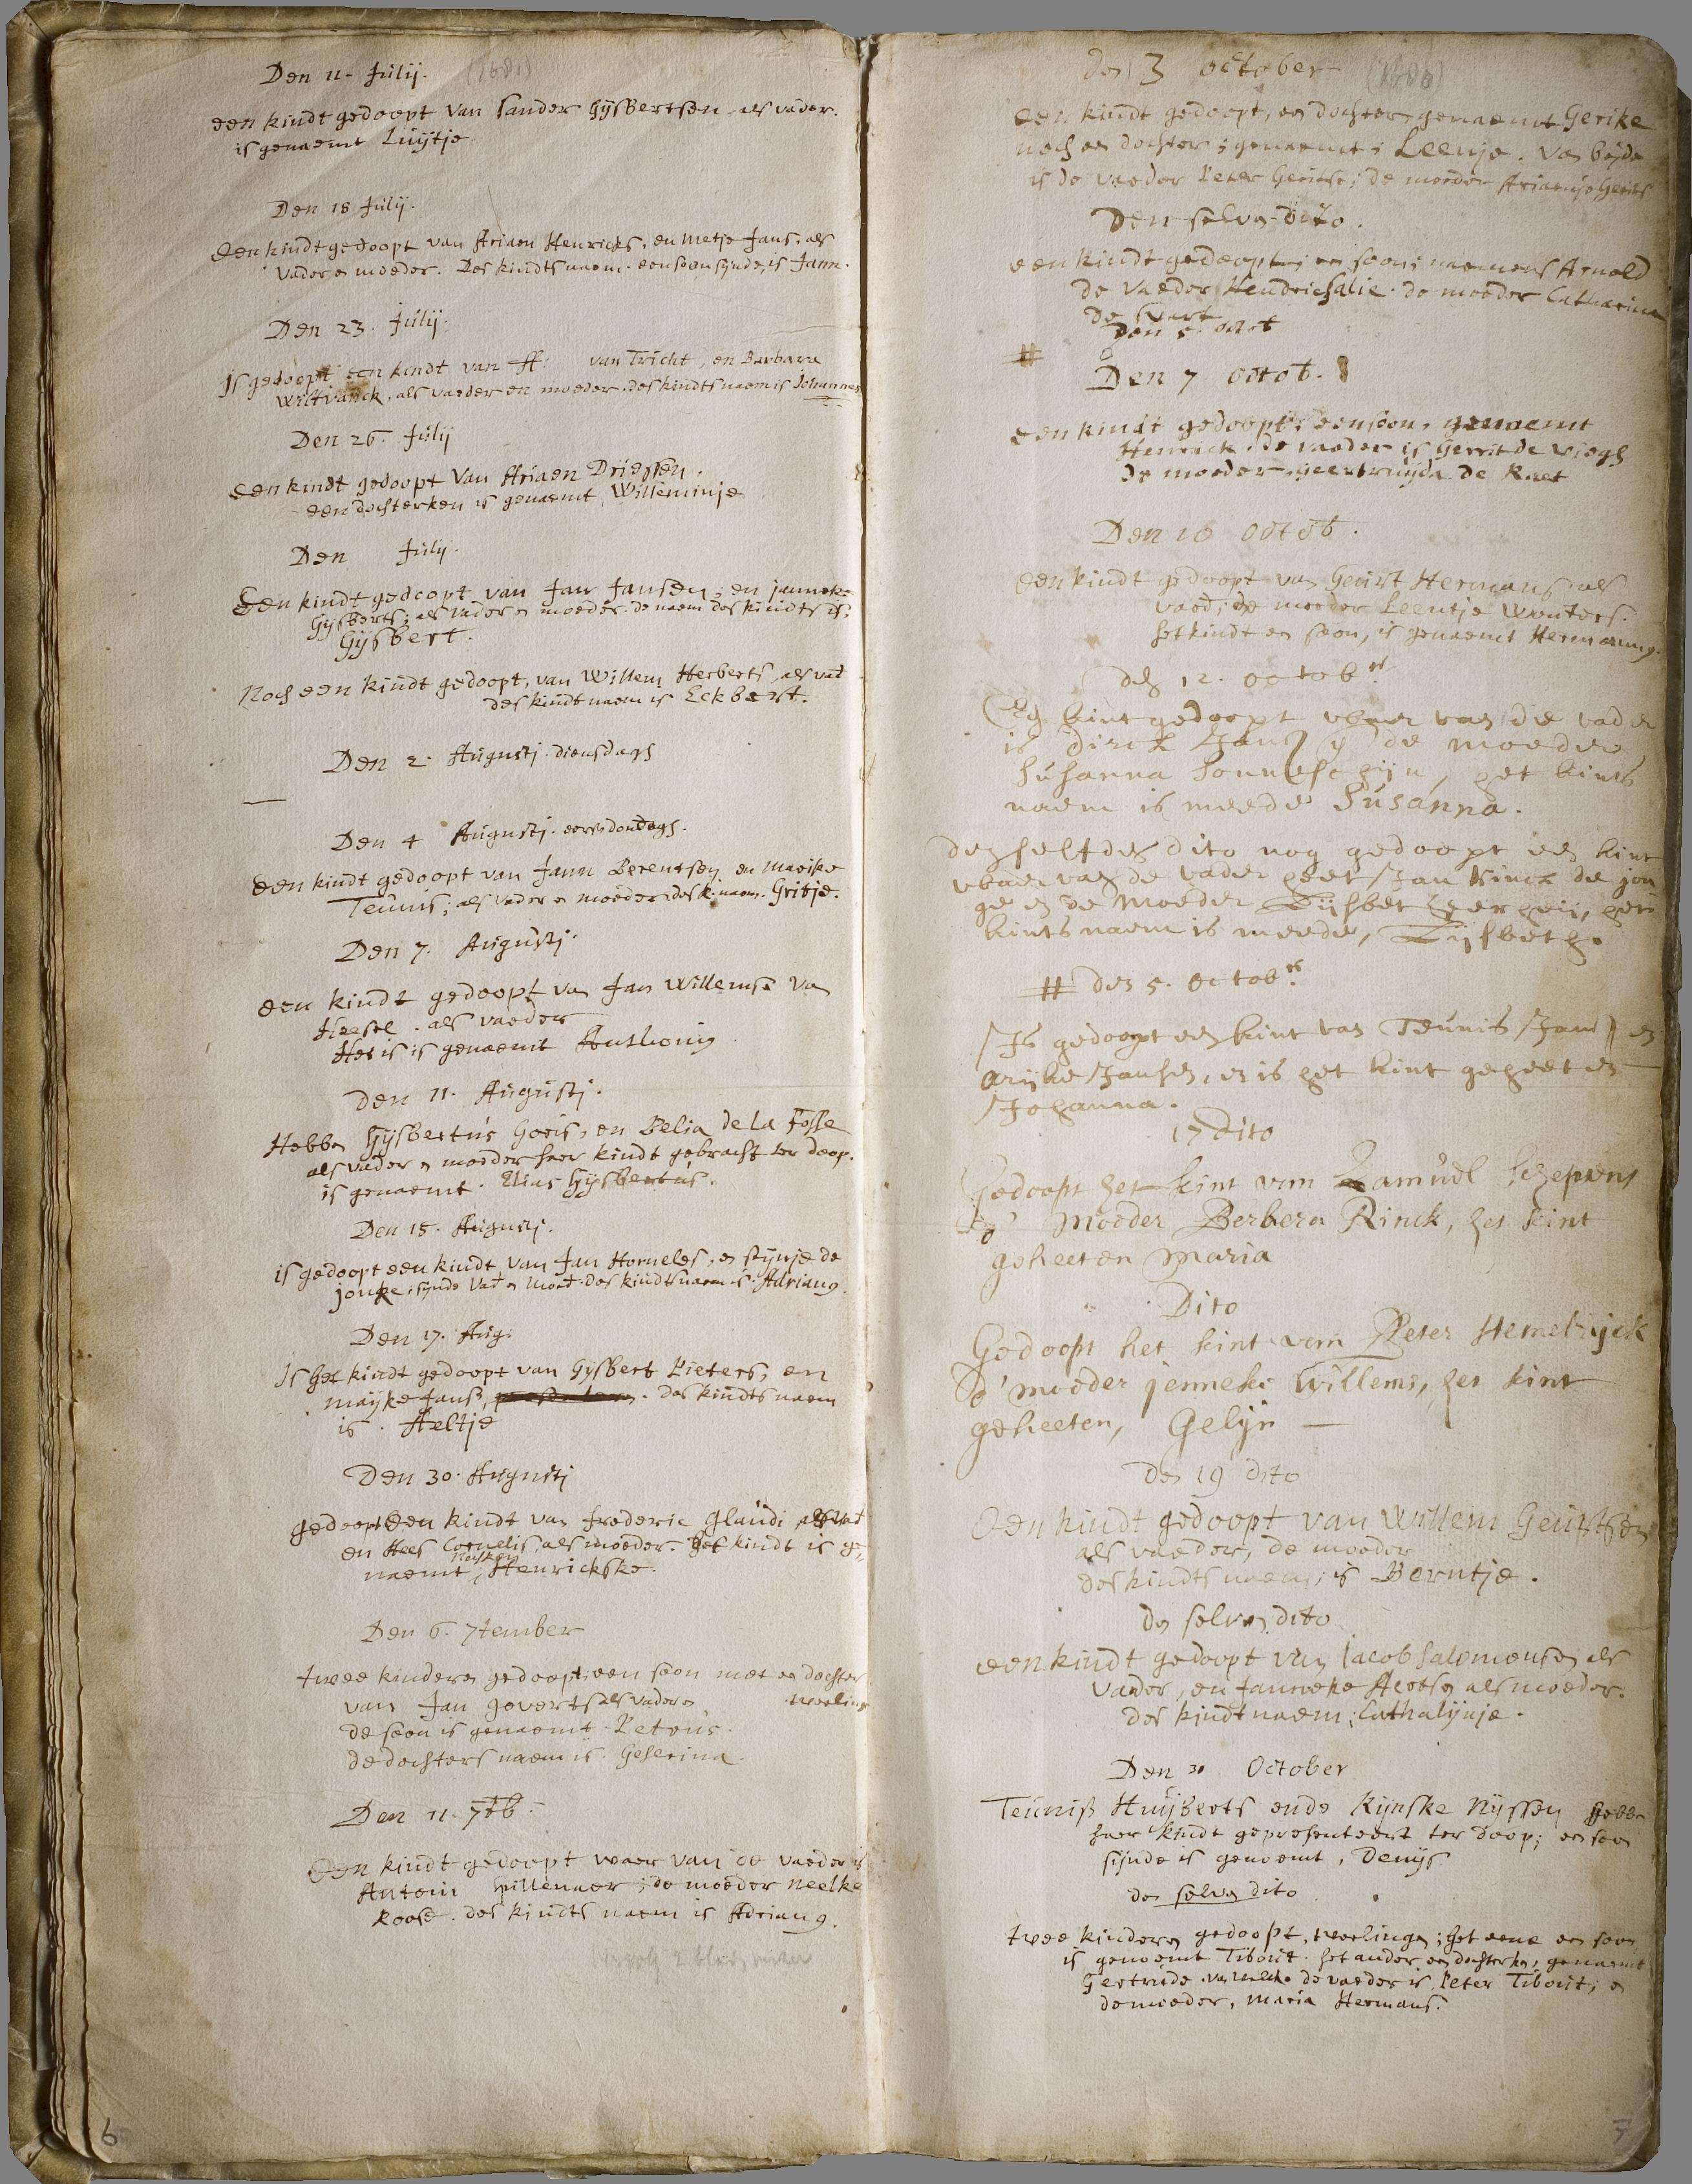 Den 11 Julij. (1681)
een kindt gedoopt van Sander Gijsbertsen als vader.
is genaemt Luijtje
Den 18 Julij.
Een kindt gedoopt van Ariaen Henricks, en Metje Jans, als
vader en moeder. Des kindts naem. een soon sijnde, is Jann.
Den 23. Julij.
Is gedoopt een kindt van H: van Tricht, en Barbara
, als vaeder en moeder. des kindts naem is Johannes
Den 26. Julij
een kindt gedoopt van Ariaen Driessen.
een dochterken is genaemt Willeminje
Den Julij.
Een kindt gedoopt van Jan Jansen; en janneke
Gijsberts; als vader en moeder. de naem des kindts is,
Gijsbert.
Noch een kindt gedoopt, van Willem Herberts, als vad
des kindt naem is Eckbert.
Den 2. Augustj. diensdaghs
Den 4 Augustj.
een kindt gedoopt van Jann Berentsen en Maeike
Teunis; als vader en moeder des k. naem. Gritje.
Den 7. Augustj.
een kindt gedoopt van Jan Willemse van
Heesel. als vaeder
Het is is genaemt Anthonis
Den 11. Augustj.
Hebben Gijsbertus Goris, en Belia de la Fosse
als vader en moeder haer kindt gebracht ter doop.
is genaemt. Elias Gijsbertus.
Den 15. Augustj.
is gedoopt een kindt van Jan Horneles, en stijnje de
jonge, sijnde vad en moed. des kindts naem is. Adrianus.
Den 17. Aug:
Is het kindt gedoopt van Gijsbert Pieters, en
maijke Jans, des kindts naem
is. Aeltje
Den 30. Augustj
gedoopt een kindt van frederic Glaudi als vad
en Hees Cornelis, als moeder. Het kindt is ge-
naemt, Henrickske.
Den 6. 7tember
twee kinderen gedoopt; een soon met een dochter
van Jan goverts als vader tweling
de soon is genaemt Petrus.
de dochters naem is. Geserina.
Den 11. 7tb.
Een kindt gedoopt waer van de vaeder is
Antoni Spillenaer; de moeder Neelke
Roose. des kindts naem is Adrianus.
6
den 3 october (1680)
een kindt gedoopt, een dochter genaemt Gerike
noch een dochter; genaemt; Leenje. van beijde
is de vaeder Peter Geritse; de moeder Ariaenje Gerits
Den selven dito.
een kindt gedoopt; een soon; naemens Arnold
de vaeder Hendric Salie. de moeder Catharina
de Swart
Den 5. octob
#
Den 7 octob.
een kindt gedoopt; een soon, genaemt
Henrick. de vaeder is Gerrit de
de moeder, geertruijda de Raet
Den 10 octob.
een kindt gedoopt van Geurt Hermans als
vaed; de moeder Leentje Wouters.
het kindt een soon, is genaemt Hermannus.
den 12. october
Een kint gedoopt waer van de vader
is dirck Jans en de moeder
Susanna Sonneschijn, het kints
naem is meede Susanna.
den selfden dito nog gedoopt een kint
waer van de vader heet Jan Rinck de jon
ge en de moeder Lijsbet , het
kints naem is meede, Lijsbeth.
# den 5. octobr.
Is gedoopt een kint van Teunis Jans en
Arijke Jansen, en is het kint geheeten
Johanna.
17 Dito
Gedoopt het kint van Samuel Schepens
d' Moeder Berbera Rinck, het kint
geheeten Maria
Dito
Gedoopt het kint van Peter Hemelrijck
d' moeder jenneke Willems, het kint
geheeten, Gelijn
den 19 dito
Een kindt gedoopt van Willem Geurtsen
als vaeder, de moeder
des kindts naem; is Berntje.
den selven dito
een kindt gedoopt van Jacob Salomonsen als
vader, en Janneke Aertsen als moeder.
des kindt naem; Cathalijnje.
Den 30 October
Teunis Huijberts ende Rijnske Nijssen hebbe
haer kindt gepresenteert ter doop; een soon
sijnde is genoemt, Denijs
den selven dito
twee kinderen gedoopt, twelingen; het eene een soon
is genoemt Tibout. het ander een dochterken, genaemt
Gertrude. van welcke de vaeder is Peter Tibout; en
de moeder, Maria Hermans.
7